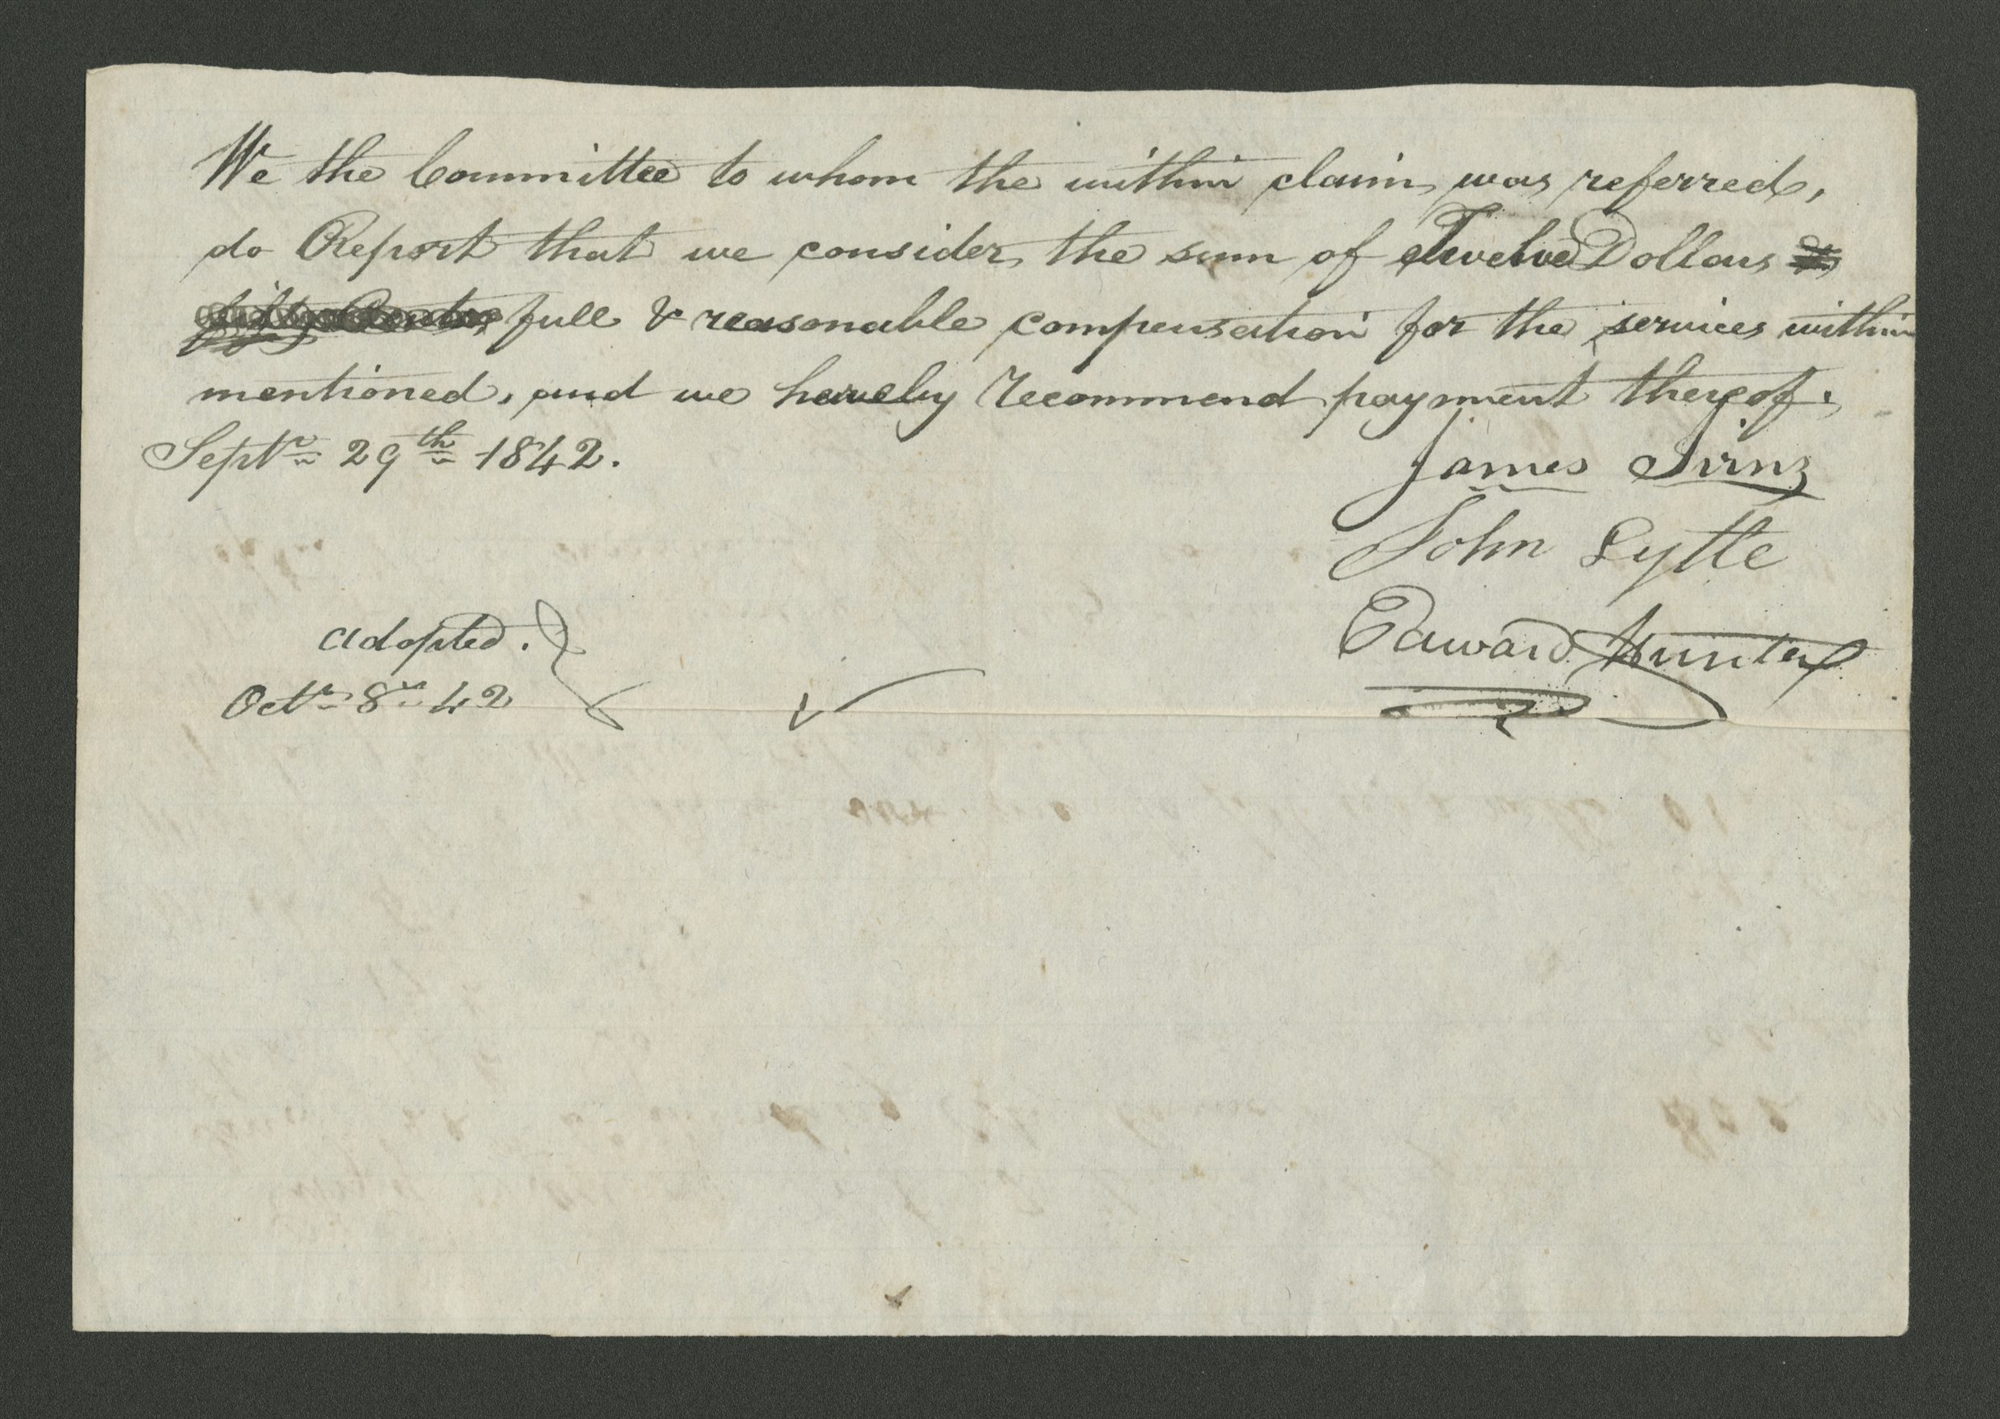 We the Committee to whom the within claim was referred,
do Report that we consider the sum of Twelve Dollars &
fifty Cents, full & reasonable compensation for the services within
mentioned, and we hereby recommend payment thereof.
Septr. 29th 1842.
James
John Lytle
Edward Hunter
adopted.
Octr. 8. 42